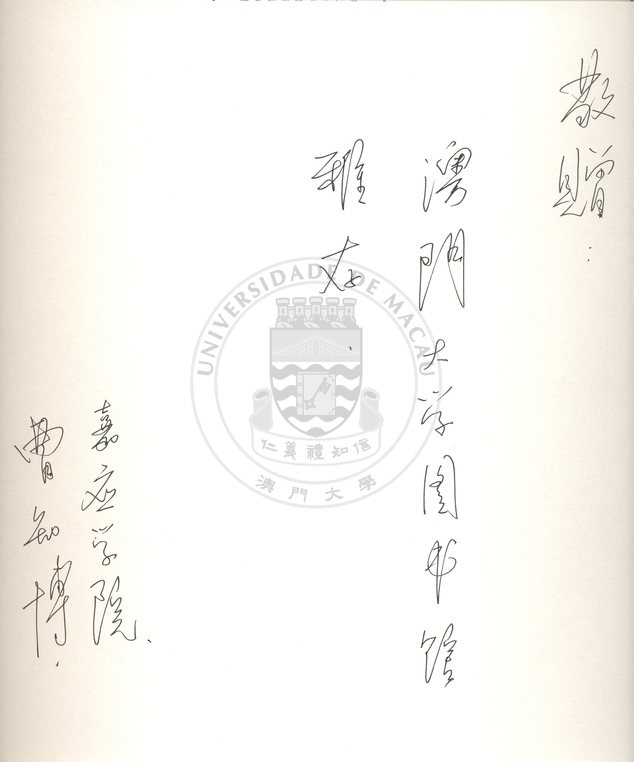 敬贈：
澳門大学図书馆
雅存
嘉应学院、
曹知博.
UNIVERSIDADE DE MACAU
仁義禮知信
澳門大學